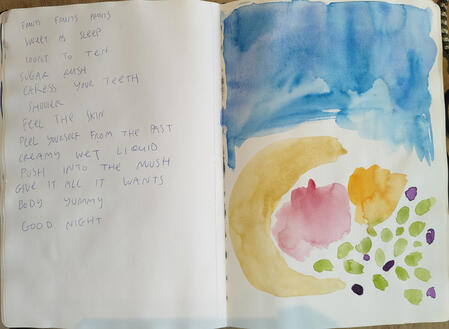 FRUITS FRUITS FRUITS
SWEET AS SLEEP
COUNT TO TEN
SUGAR RUSH
CARESS YOUR TEETH
SHOWER
FEEL THE SKIN
PEEL YOURSELF FROM THE PAST
CREAMY WET LIQUID
PUSH INTO THE MUSH
GIVE IT ALL IT WANTS
BODY YUMMY
GOOD NIGHT